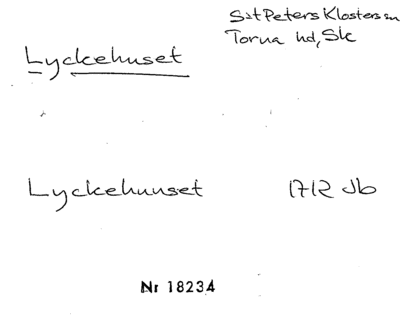 S:t Peters Klosters sn
Torna hd, Sk
Lyckehuset
Lyckehuset 1712 Jb
Nr 18234